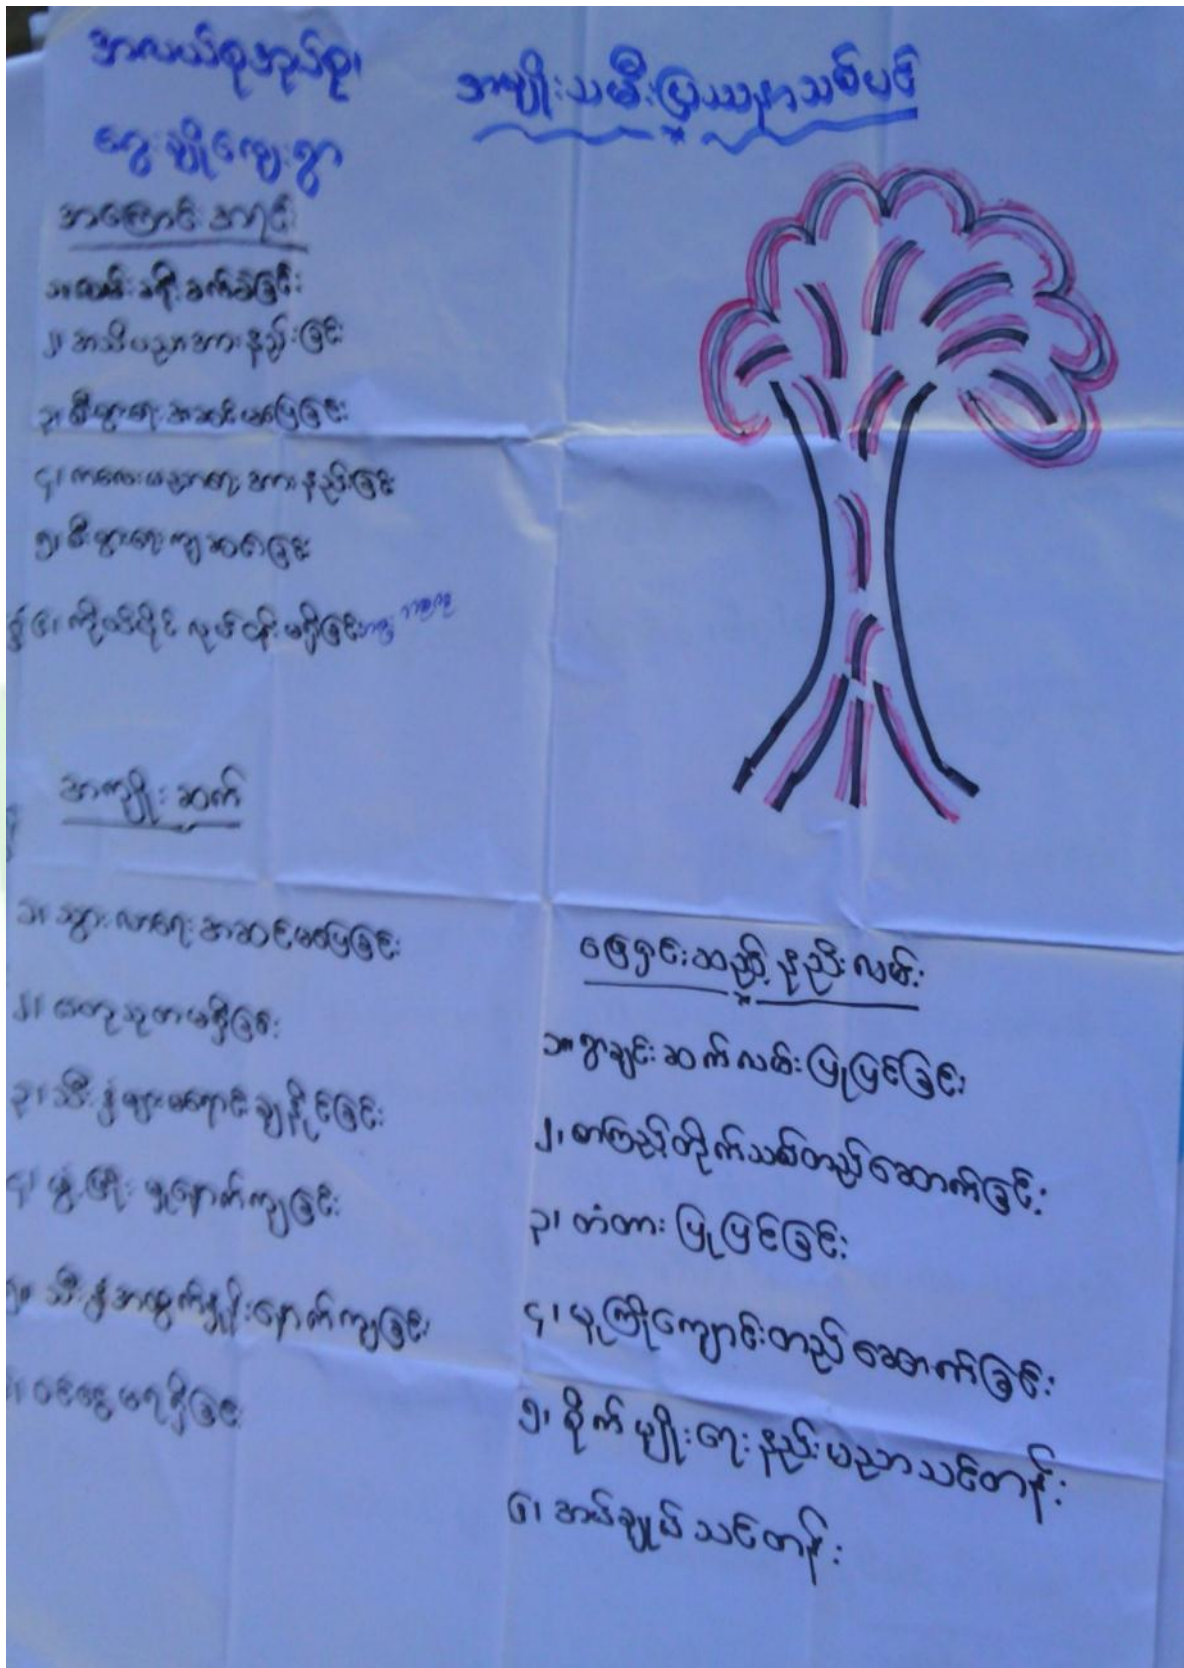 အလယ်စုအုပ်စု၊
ရွေးချိုကျေးရွာ
အမျိုးသမီးပြဿနာသစ်ပင်
အကြောင်းအရင်း
၁။ လမ်းခရီးခက်ခဲခြင်း
၂။ အသိပညာအားနည်းခြင်း
၃။ စီးပွားရေးအဆင်မပြေခြင်း
၄။ ကလေးပညာရေးအားနည်းခြင်း
၅။ စီးပွားရေးကျဆင်းခြင်း
၆။ ကိုယ်ပိုင်လုပ်ငန်းမရှိခြင်း
အကျိုးဆက်
၁။ သွားလာရေးအဆင်မပြေခြင်း
၂။ ဗဟုသုတမရှိခြင်း
၃။ သီးနှံများမရောင်းချနိုင်ခြင်း
၄။ ဖွံ့ဖြိုးမှုနောက်ကျခြင်း
၅။ သီးနှံအထွက်နှုန်းနောက်ကျခြင်း
၆။ ဝင်ငွေမရရှိခြင်း
ဖြေရှင်းသည့်နည်းလမ်း
၁။ ရွာချင်းဆက်လမ်းပြုပြင်ခြင်း
၂။ စာကြည့်တိုက်သစ်တည်ဆောက်ခြင်း
၃။ တံတားပြုပြင်ခြင်း
၄။ မူကြိုကျောင်းတည်ဆောက်ခြင်း
၅။ စိုက်ပျိုးရေးနည်းပညာသင်တန်း
၆။ အပ်ချုပ်သင်တန်း